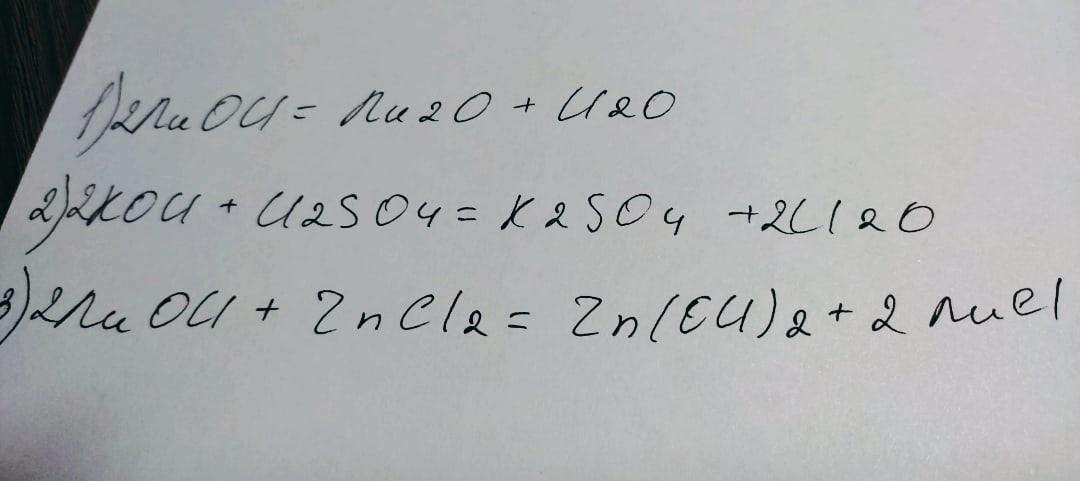 1) 2NaOH = Na2O + H2O
2) 2KOH + H2SO4 = K2SO4 + 2H2O
3) 2NaOH + ZnCl2 = Zn(OH)2 + 2NaCl